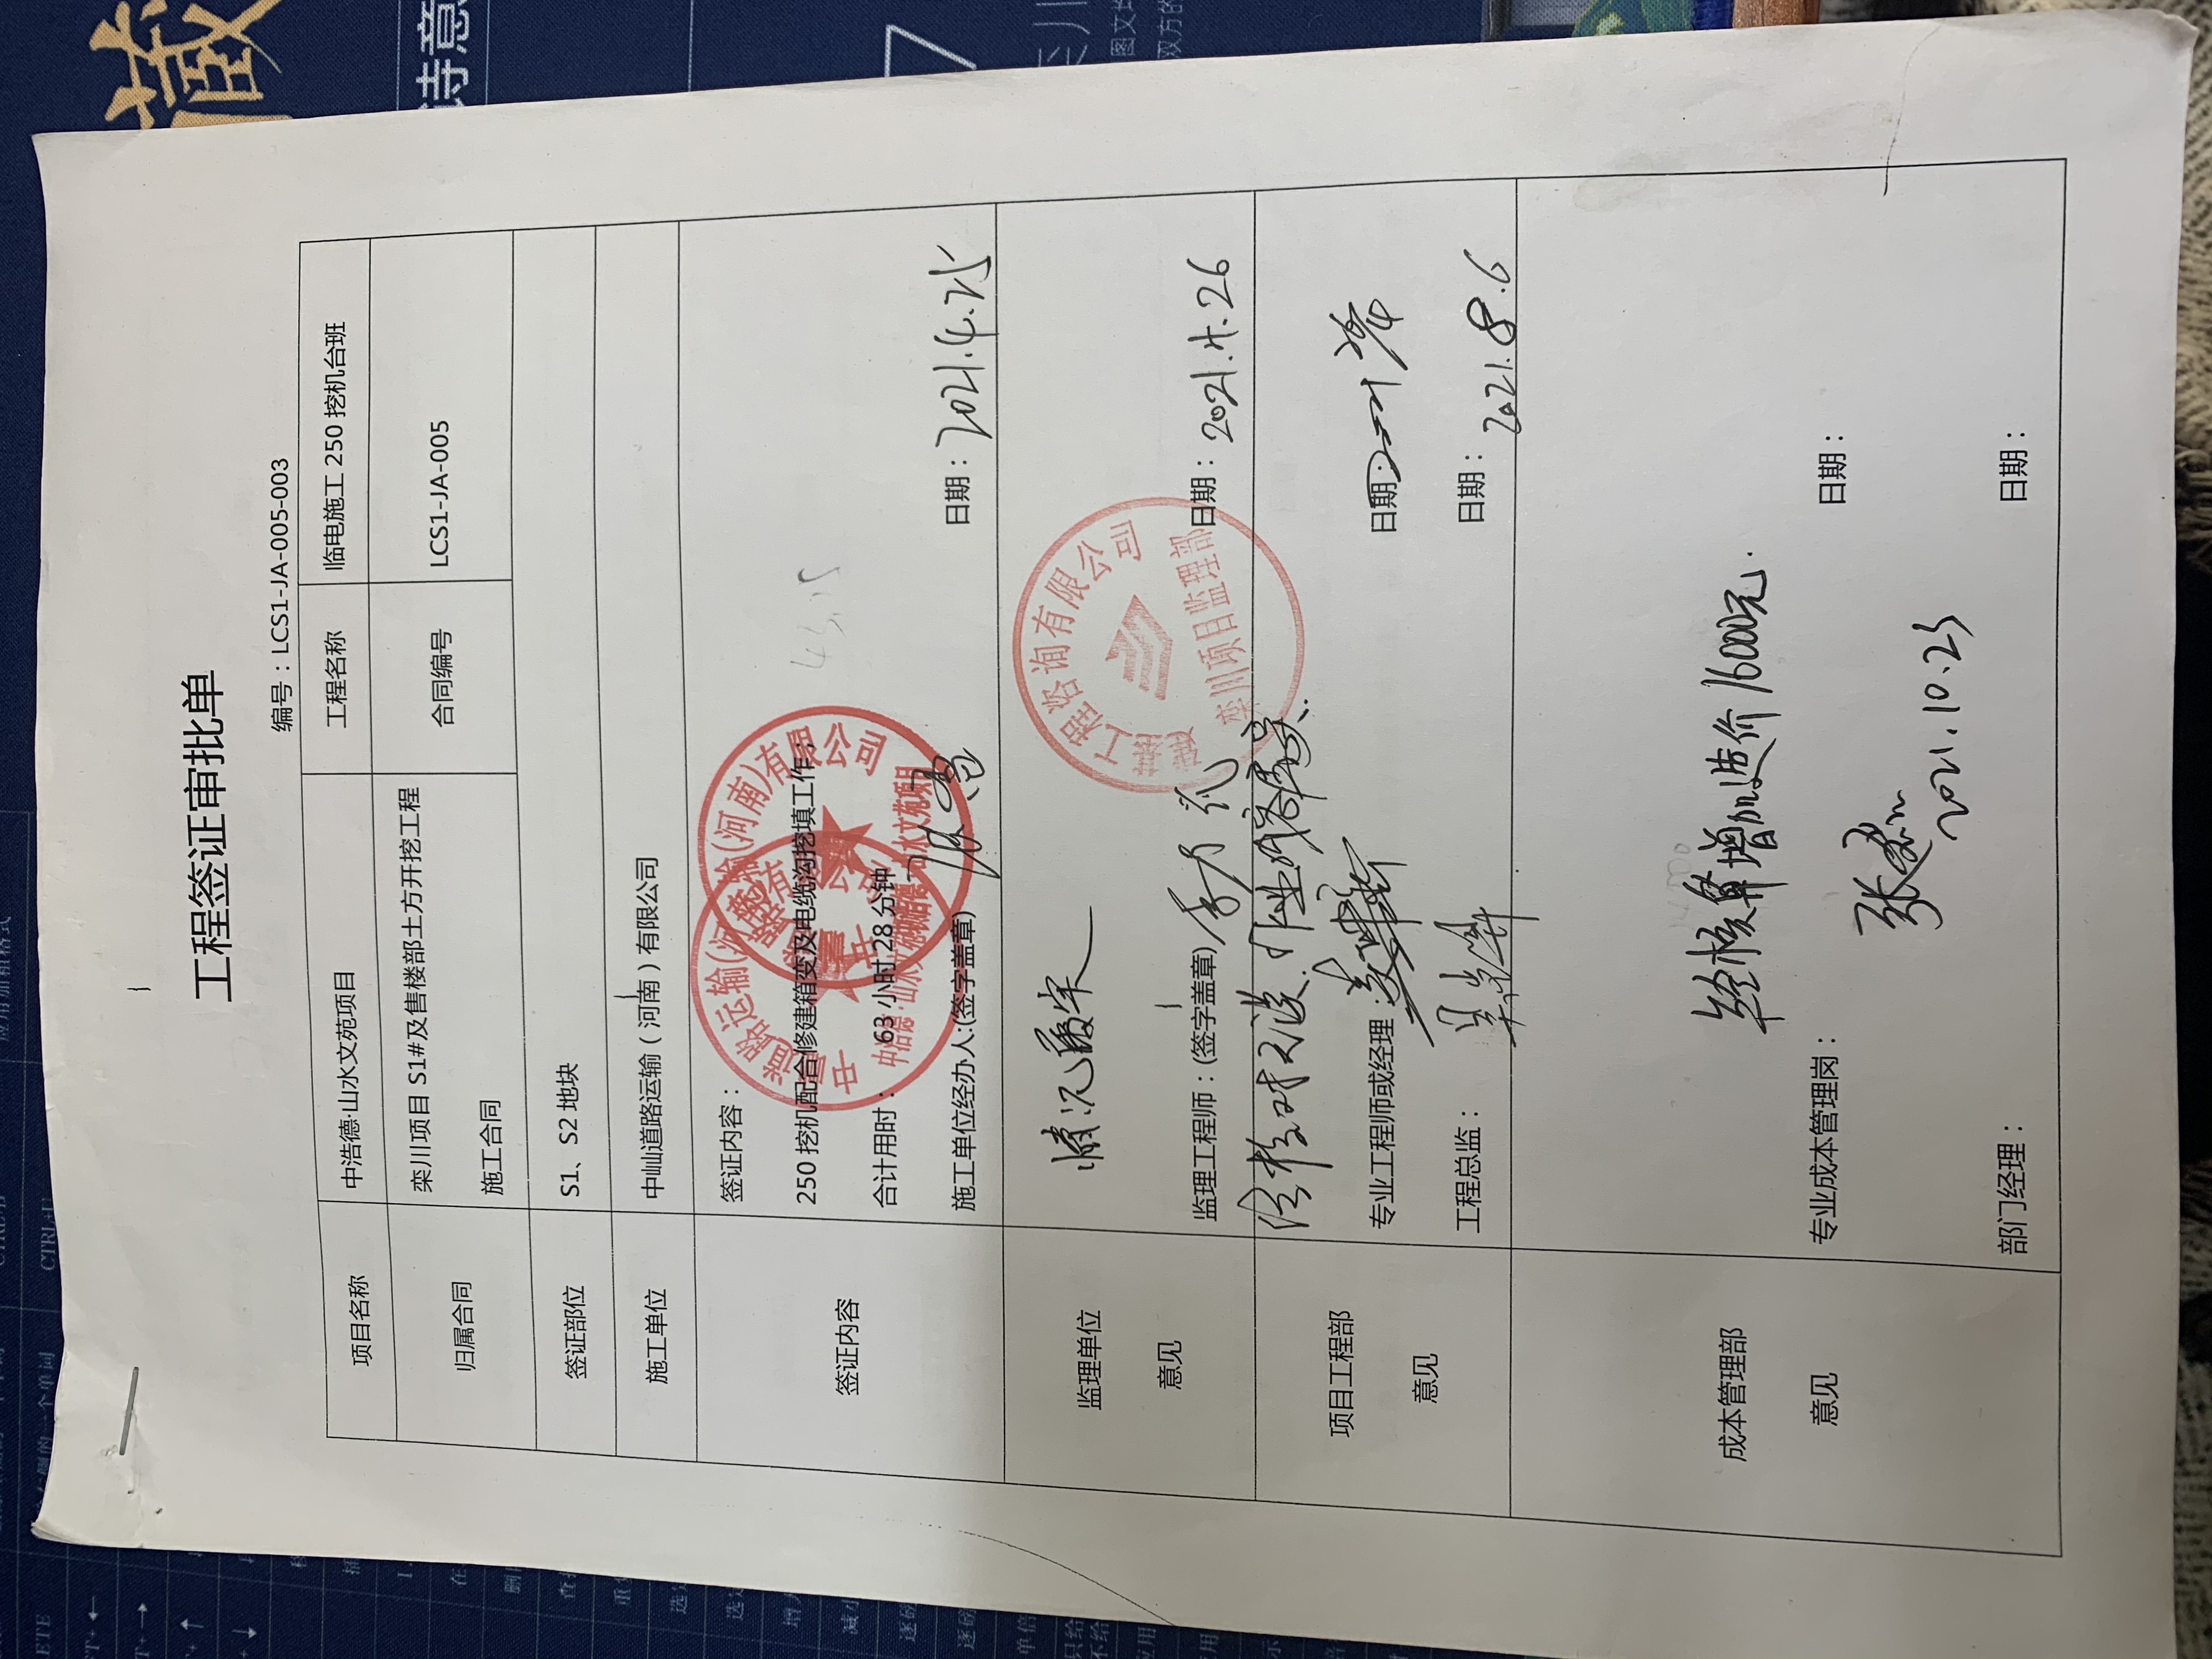 工程签证审批单
编号：LCS1-JA-005-003
项目名称 中浩德·山水文苑项目 工程名称 临电施工 250 挖机台班
归属合同 栾川项目 S1#及售楼部土方开挖工程
施工合同 合同编号 LCS1-JA-005
签证部位 S1、S2 地块
施工单位 中屾道路运输（河南）有限公司
签证内容
签证内容：
250 挖机配合修建箱变及电缆沟挖填工作；
合计用时： 63 小时 28 分钟
施工单位经办人:(签字盖章)
日期：2021.4.25
道路运输(河南)有限公司
监理单位
意见
情况属实
监理工程师：(签字盖章)
日期：2021.4.26
建基工程咨询有限公司
栾川项目监理部
项目工程部
意见
专业工程师或经理：
日期：2021
工程总监：
日期：2021.8.6
成本管理部
意见
经核算增加造价16000元.
专业成本管理岗：
张
2021.10.23
日期：
部门经理：
日期：